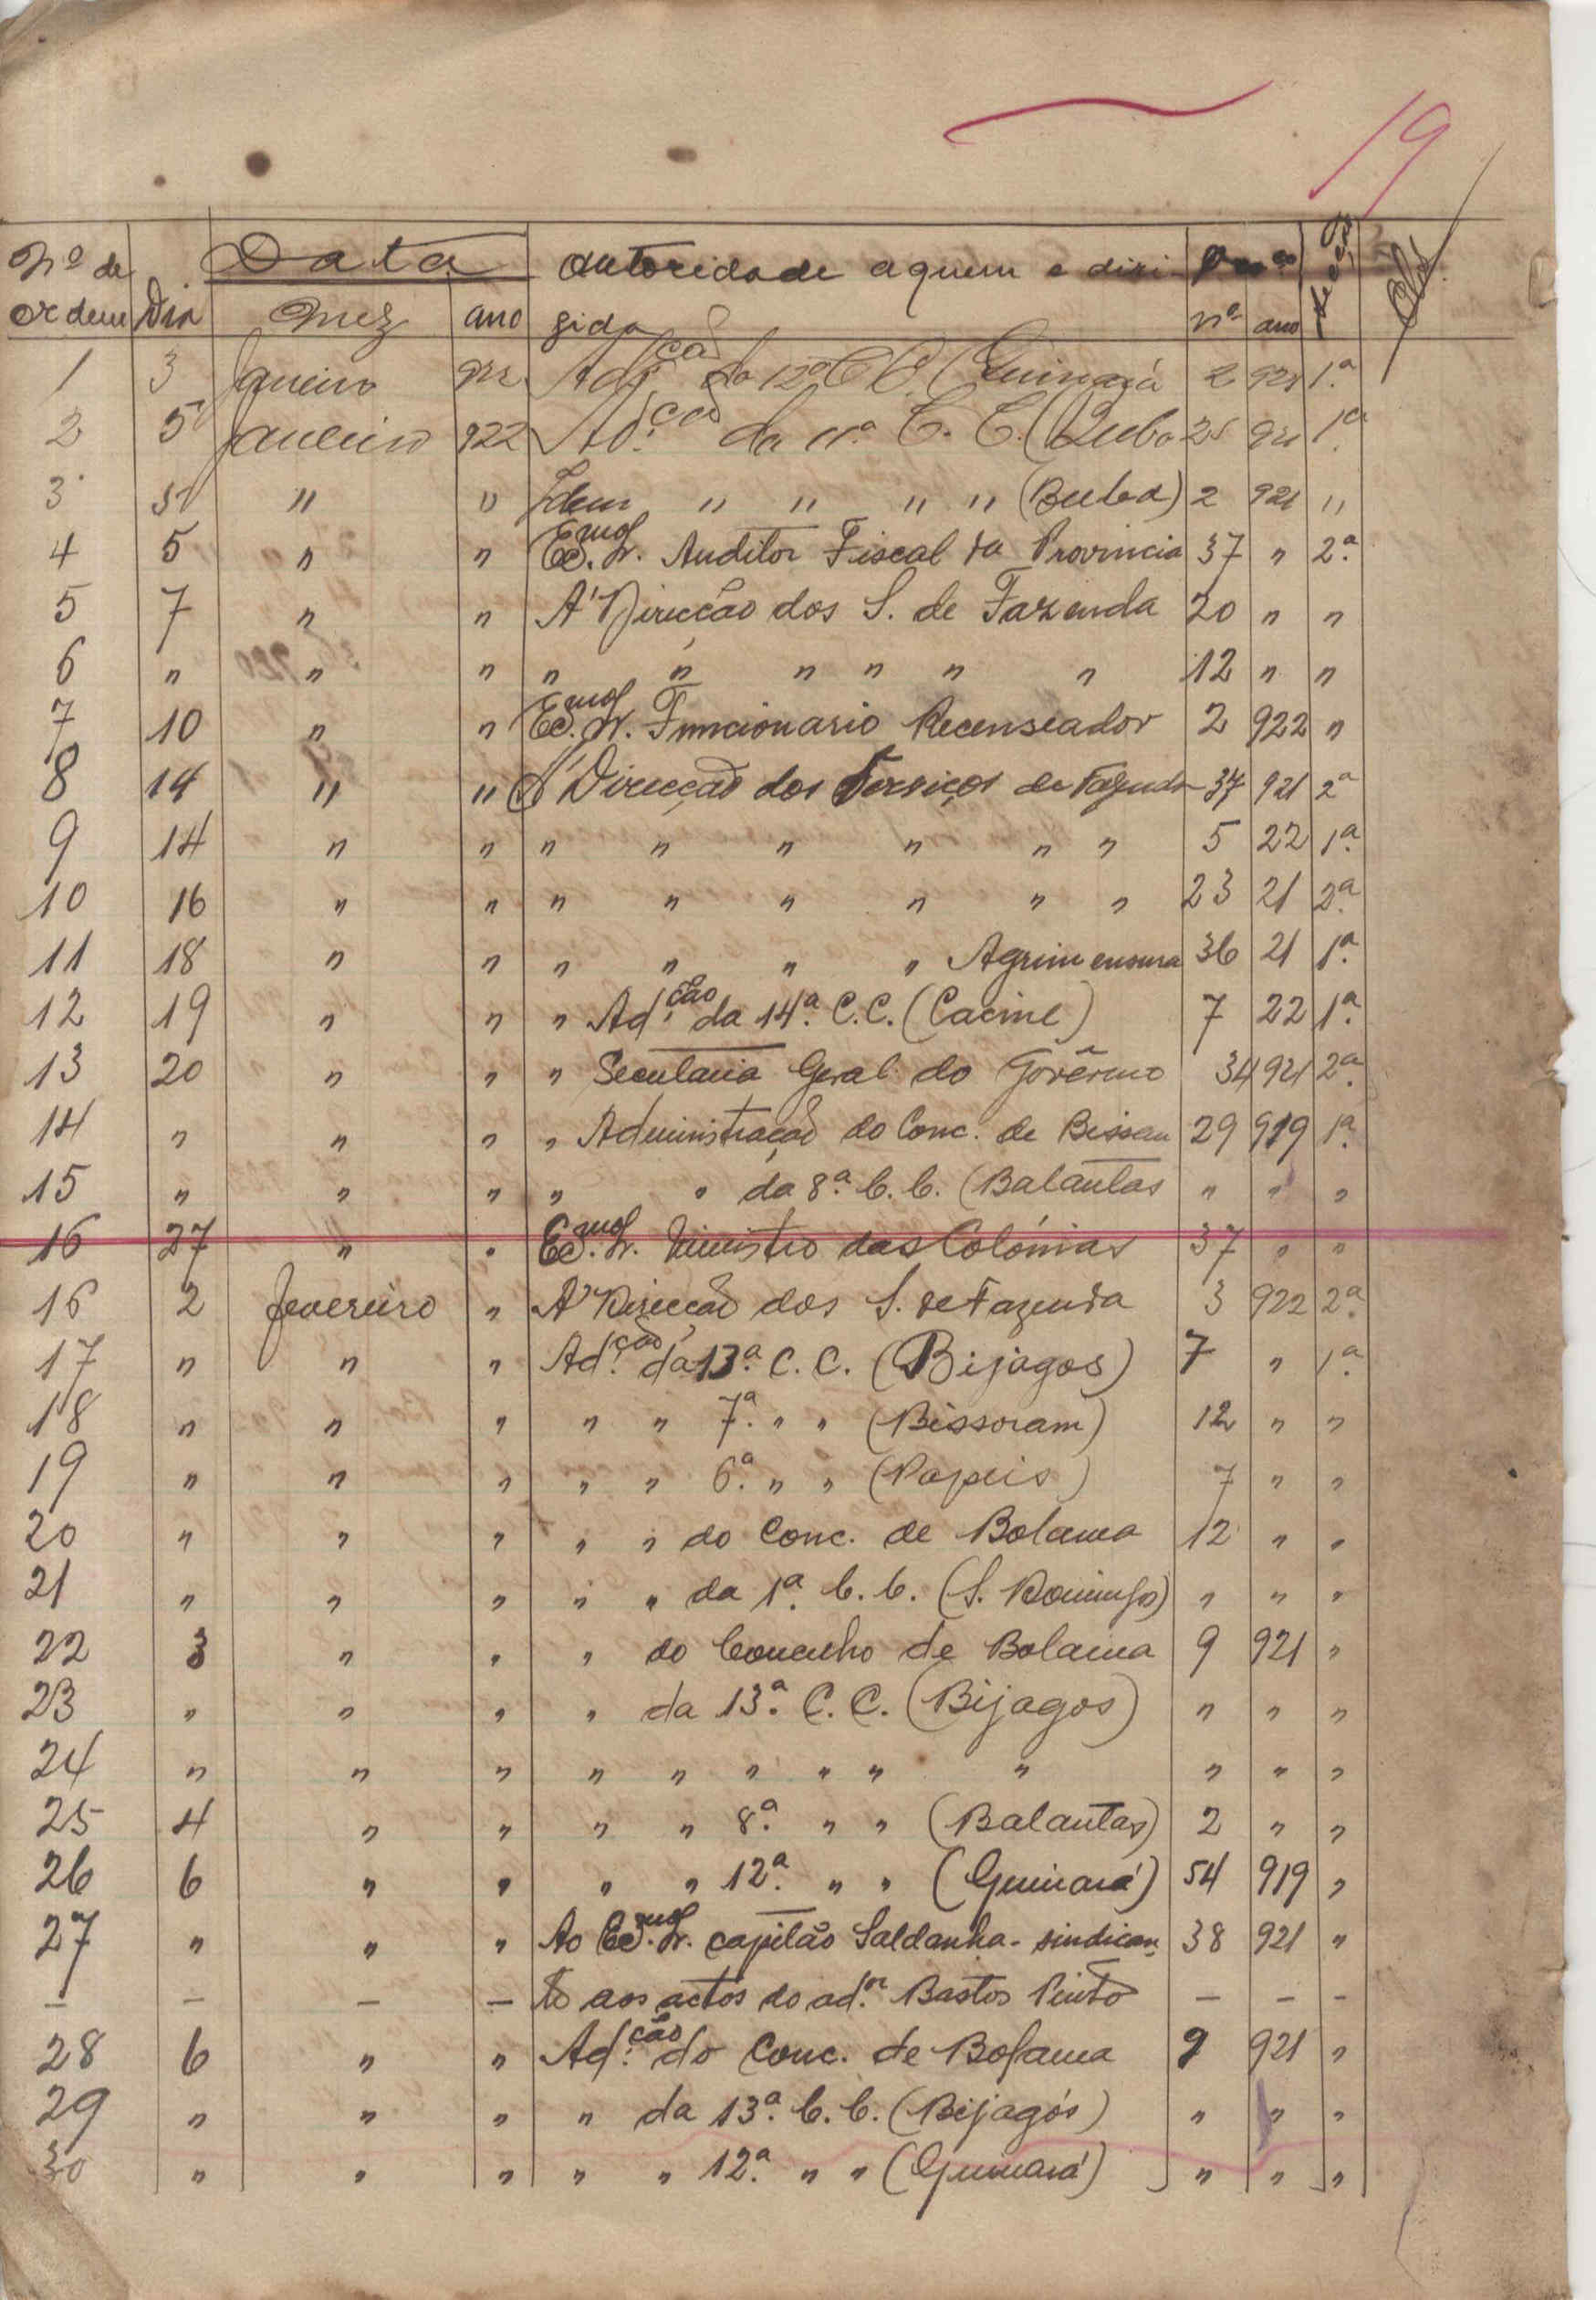 19
Nº de Data autoridade a quem e diri- Procº Secção Obs.
ordem Dia Mez ano gida nº ano
1 3 Janeiro 922 Adm.ção da 12ª C. C. (Quinará 2 921 1ª
2 5 Janeiro 922 Ad.ção da 11ª C. C. (Buba 25 921 1ª
3 5 " " Idem " " " " (Buba) 2 921 "
4 5 " " Ex.mo Sr. Auditor Fiscal da Provincia 37 " 2ª
5 7 " " A' Direcção dos S. de Fazenda 20 " "
6 " " " " " " " " " 12 " "
7 10 " " Ex.mo Sr. Funcionario Recenseador 2 922 "
8 14 " " A' Direcção dos Serviços de Fazenda 37 921 2ª
9 14 " " " " " " " " 5 22 1ª
10 16 " " " " " " " " 23 21 2ª
11 18 " " " " " " Agrimensura 36 21 1ª
12 19 " " " Ad.ção da 14ª C. C. (Cacine) 7 22 1ª
13 20 " " " Secretaria Geral do Govêrno 34 921 2ª
14 " " " " Administração do Conc. de Bissau 29 919 1ª
15 " " " " " da 8ª C. C. (Balantas " " "
16 27 " " Ex.mo Sr. Ministro das Colónias 37 " "
16 2 fevereiro " A' Direcção dos S. de Fazenda 3 922 2ª
17 " " " Ad.ção da 13ª C. C. (Bijagos) 7 " 1ª
18 " " " " " 7ª " " (Bissoram) 12 " "
19 " " " " " 6ª " " (Papeis) 7 " "
20 " " " " " do Conc. de Bolama 12 " "
21 " " " " " da 1ª C. C. (S. Domingos) " " "
22 3 " " " do Concelho de Bolama 9 921 "
23 " " " " da 13ª C. C. (Bijagos) " " "
24 " " " " " " " " " " " "
25 4 " " " " 8ª " " (Balantas) 2 " "
26 6 " " " " 12ª " " (Quinará) 54 919 "
27 " " " Ao Ex.mo Sr. capitão Saldanha - sindican- 38 921 "
– – – – te aos actos do ad.or Bastos Pinto – – –
28 6 " " Ad.ção do Conc. de Bolama 9 921 "
29 " " " " da 13ª C. C. (Bijagós) " " "
30 " " " " " 12ª " " (Quinará) " " "